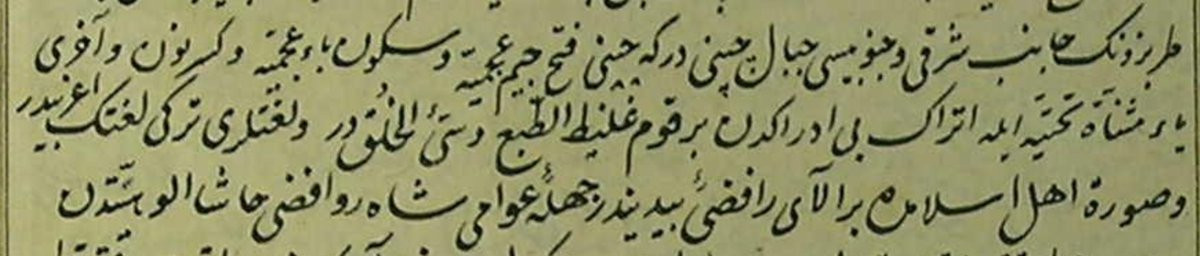 طربزونك جانب شرقى و جنوبيسى جبال چپنى در كه چپنى فتح جيم عجميه و سكون باء عجميه و كسر نون و آخرى
ياء مثناة تحتيه ايله اتراك بى ادراكدن بر قوم غليظ الطبع و سئ الخلق در و لغتلرى تركى لغتك اغربيدر
و صورة اهل اسلامدن بر آلاى رافضئ بيديندر جهلهٔ عوامى شاه روافضى حاشا الوهيتدن